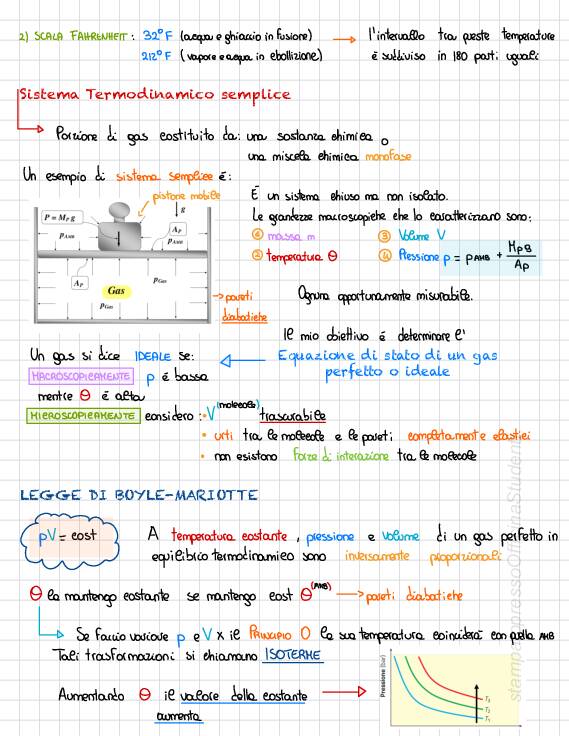 2) SCALA FAHRENHEIT: 32°F (acqua e ghiaccio in fusione) → l'intervallo tra queste temperature
212°F (vapore e acqua in ebollizione) è suddiviso in 180 parti uguali
Sistema Termodinamico semplice
Porzione di gas costituito da: una sostanza chimica o
una miscela chimica monofase
Un esempio di sistema semplice è:
pistone mobile
P = M_P g
g
p_AMB
A_P
p_AMB
A_P
Gas
p_Gas
p_Gas
→ pareti
diabatiche
È un sistema chiuso ma non isolato.
Le grandezze macroscopiche che lo caratterizzano sono:
① massa m ③ Volume V
② temperatura θ ④ Pressione p = p_AMB + M_P g / A_P
Ognuna opportunamente misurabile.
Il mio obiettivo è determinare l'
Equazione di stato di un gas
perfetto o ideale
Un gas si dice IDEALE se:
MACROSCOPICAMENTE p è bassa
mentre θ è alta
MICROSCOPICAMENTE considero: • V (molecole) trascurabile
• urti tra le molecole e le pareti completamente elastici
• non esistono forze di interazione tra le molecole
LEGGE DI BOYLE-MARIOTTE
pV = cost
A temperatura costante, pressione e volume di un gas perfetto in
equilibrio termodinamico sono inversamente proporzionali
θ la mantengo costante se mantengo cost θ (AMB) → pareti diabatiche
Se faccio variare p e V x il PRINCIPIO 0 la sua temperatura coinciderà con quella AMB
Tali trasformazioni si chiamano ISOTERME
Aumentando θ il valore della costante
aumenta
Pressione (bar)
T₃
T₂
T₁
stampato presso Officina Studenti